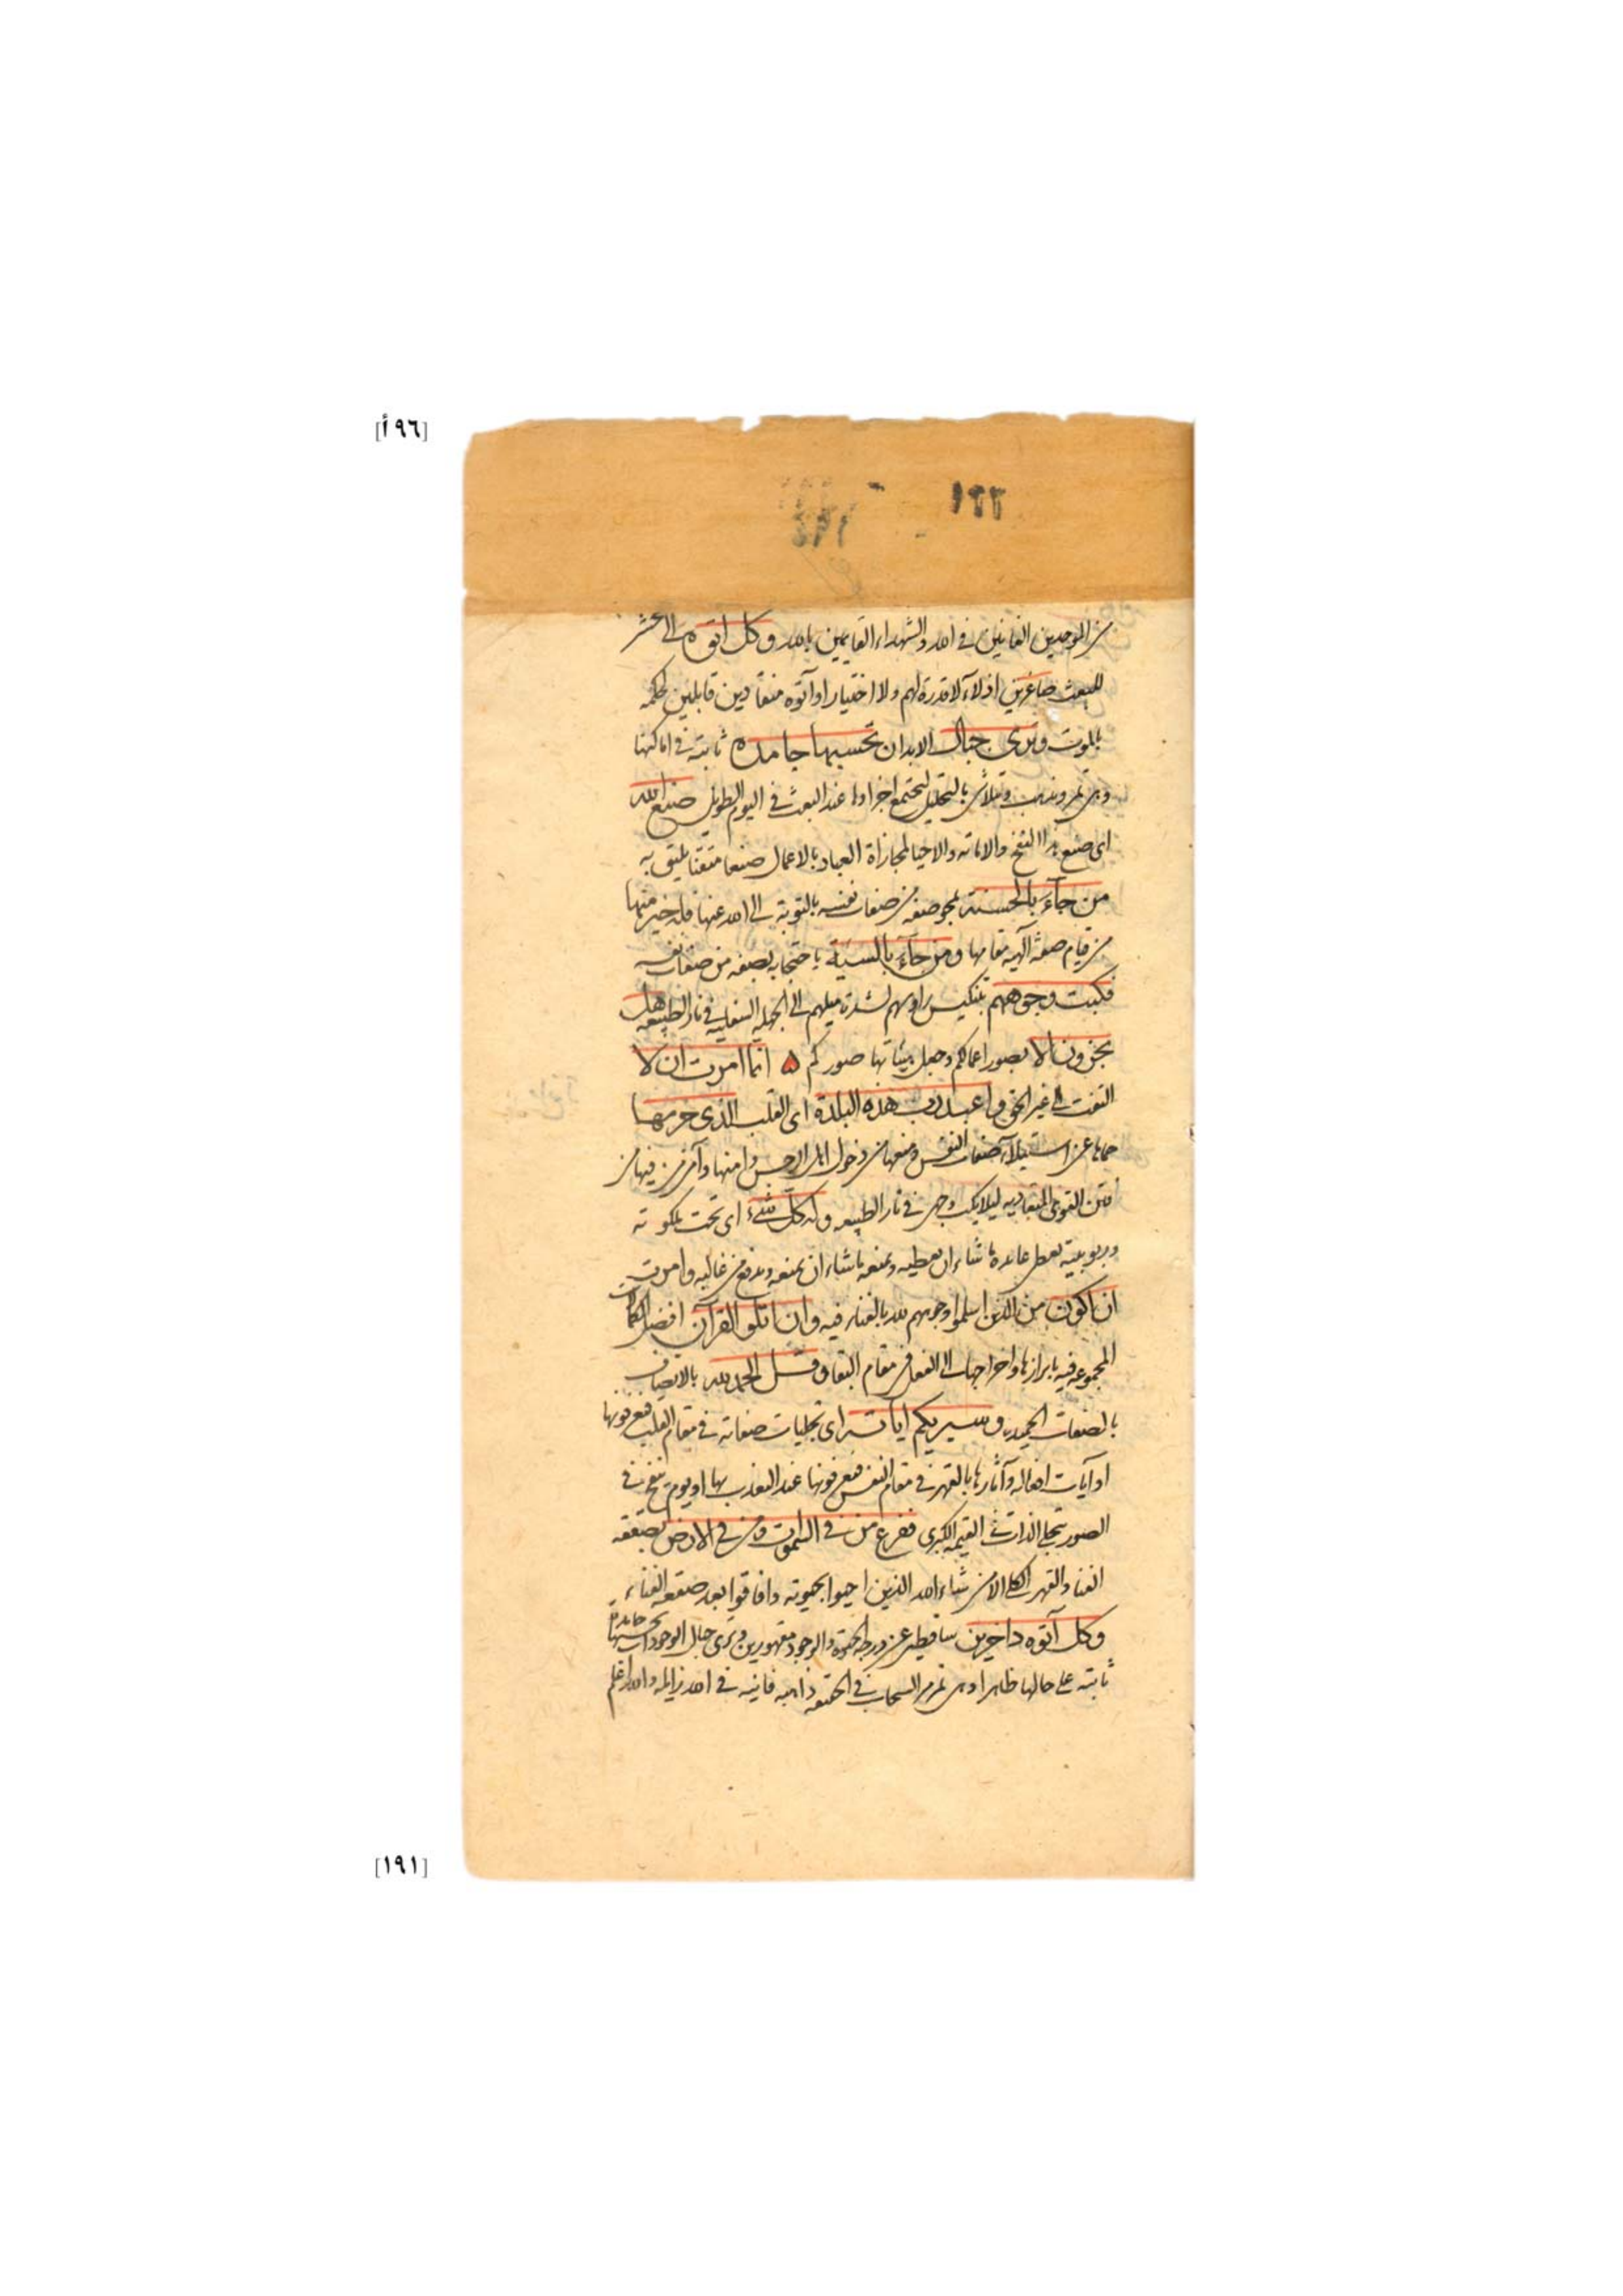 [٩٦أ]
١٢٢
من الموحدين الفانين في الله والشهداء القايمين بالله وكل اتوه الى المحشر
للبعث صاغرين اذلاء لا قدرة لهم ولا اختيار او آتوه منقادين قابلين لحكمه
بالموت وترى جبال الابدان تحسبها جامدة ثابتة في اماكنها
وهي تمر وتذهب وتتلاشى بالتحليل لتجتمع اجزاوها عند البعث في اليوم الطويل صنع الله
اي صنع هذا النفخ والاماتة والاحيا لمجازاة العباد بالاعمال صنعا متقنا يليق به
من جآء بالحسنة بمحو صفة من صفات نفسه بالتوبة الى الله عنها فله خير منها
من قيام صفة آلهية مقامها ومن جآء بالسيئة باحتجابه بصفة من صفات نفسه
فكبت وجوههم بتنكيس راوسهم لشدة ميلهم الى الجهة السفلية في نار الطبيعه هل
تجزون الا بصور اعمالكم وجعل هيئاتها صوركم ه انما امرت ان لا
التفت الى غير الحق واعبد رب هذه البلدة اي القلب الذي حرمها
حماها عن استيلآء صفات النفس ومنعها من دخول اهل الرجس وامنها وآمن من فيها من
فتن القوى ليلا يكب وجهي في نار الطبيعه وله كل شيء اي تحت ملكوته
وربوبيته يعطي عابده ما شاء ان يعطيه ويمنعه ما شاء ان يمنعه ويدفع من غالبه وامرت
ان اكون من الذين اسلموا وجوههم لله بالفناء فيه وان اتلو القرآن افصل الكمالات
المجموعه فيه بابرازها واخراجها الى الفعل في مقام البقا وقل الحمد لله بالاتصاف
بالصفات الحميدة وسيريكم اياته اي تجليات صفاته في مقام القلب فتعرفونها
او آيات افعاله وآثارها بالقهر في مقام النفس فتعرفونها عند التعذب بها او يوم ينفخ في
الصور بتجلي الذات في القيمة الكبرى ففزع من في السموات ومن في الارض بصعقة
الفناء والقهر الكلي الا من شاء الله الذين احيوا بحيوته وافاقوا بعد صعقة الفناء
وكل آتوه داخرين ساقطين عن درجة الحيوة والوجود مقهورين وترى جبال الوجودات تحسبها جامدة
ثابتة على حالها ظاهرا وهي تمر مر السحاب في الحقيقة ذاهبة فانية في الله زايلة والله اعلم
[١٩١]